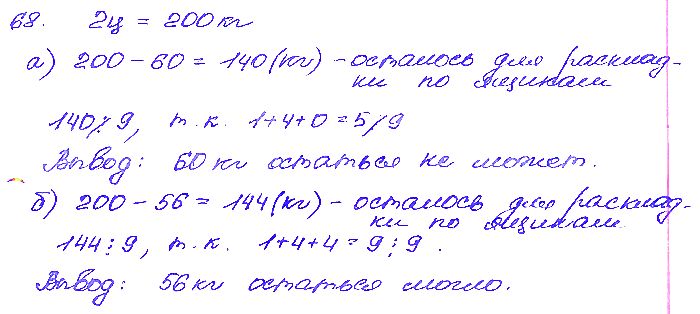 68. 2ц = 200 кг
а) 200 – 60 = 140 (кг) – осталось для расклад-
ки по ящикам
140 ⋮̸ 9, т.к. 1+4+0 = 5 ⋮̸ 9
Вывод: 60 кг остаться не может.
б) 200 – 56 = 144 (кг) – осталось для расклад-
ки по ящикам
144 ⋮ 9, т.к. 1+4+4 = 9 ⋮ 9.
Вывод: 56 кг остаться могло.